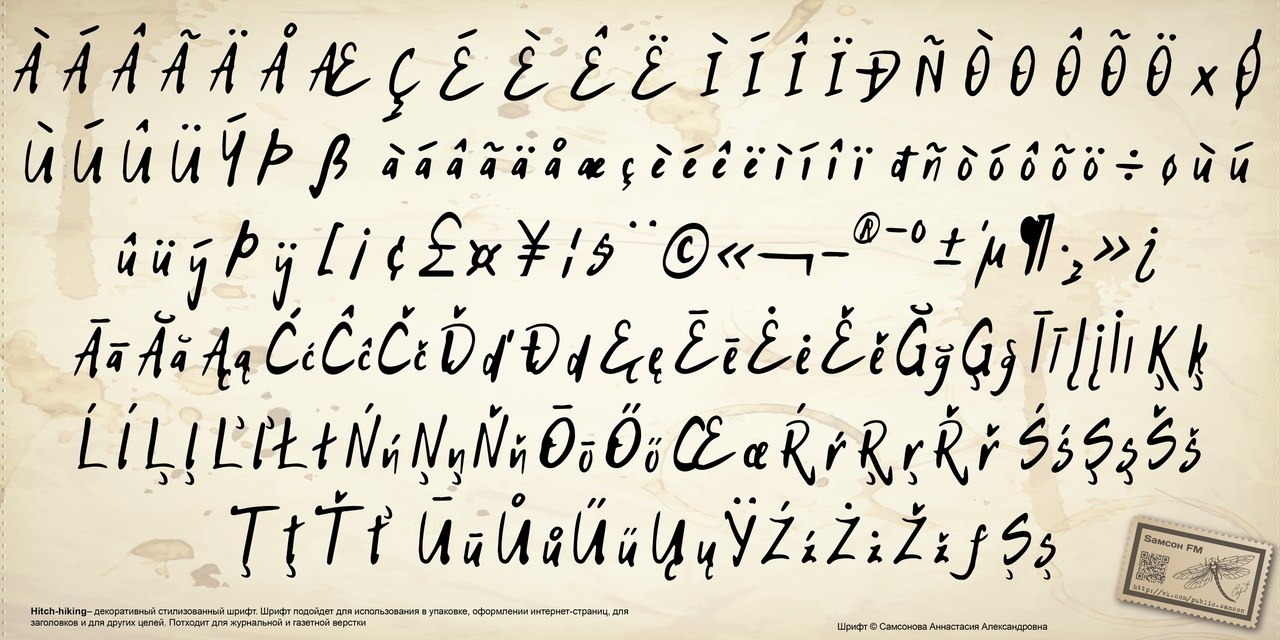 À Á Â Ã Ä Å Æ Ç É È Ê Ë Ì Í Î Ï Ð Ñ Ò O Ô Õ Ö × Ø
Ù Ú Û Ü Ý Þ ß à á â ã ä å æ ç è é ê ë ì í î ï đ ñ ò ó ô õ ö ÷ ø ù ú
û ü ý Þ ÿ [ ¡ ¢ £ ¤ ¥ ¦ § ¨ © « ¬ – ® – ° ± ´ µ ¶ · ¸ » ¿
Ā ā Ă ă Ą ą Ć ć Ĉ ĉ Č č Ď ď Đ d Ę ę Ē ē Ė ė Ě ě Ğ ğ Ģ ģ Ī ī Į į İ ı Ķ ķ
Ĺ ĺ Ļ ļ Ľ ľ Ł ł Ń ń Ņ ņ Ň ň Ō ō Ő ő Œ œ Ŕ ŕ Ŗ ŗ Ř ř Ś ś Ş ş Š š
Ţ ţ Ť ť Ū ū Ů ů Ű ű Ų ų Ÿ Ź ź Ż ż Ž ž ƒ Ș ș
Samсон FM
http://vk.com/public.samson
Hitch-hiking– декоративный стилизованный шрифт. Шрифт подойдет для использования в упаковке, оформлении интернет-страниц, для
заголовков и для других целей. Потходит для журнальной и газетной верстки
Шрифт © Самсонова Аннастасия Александровна